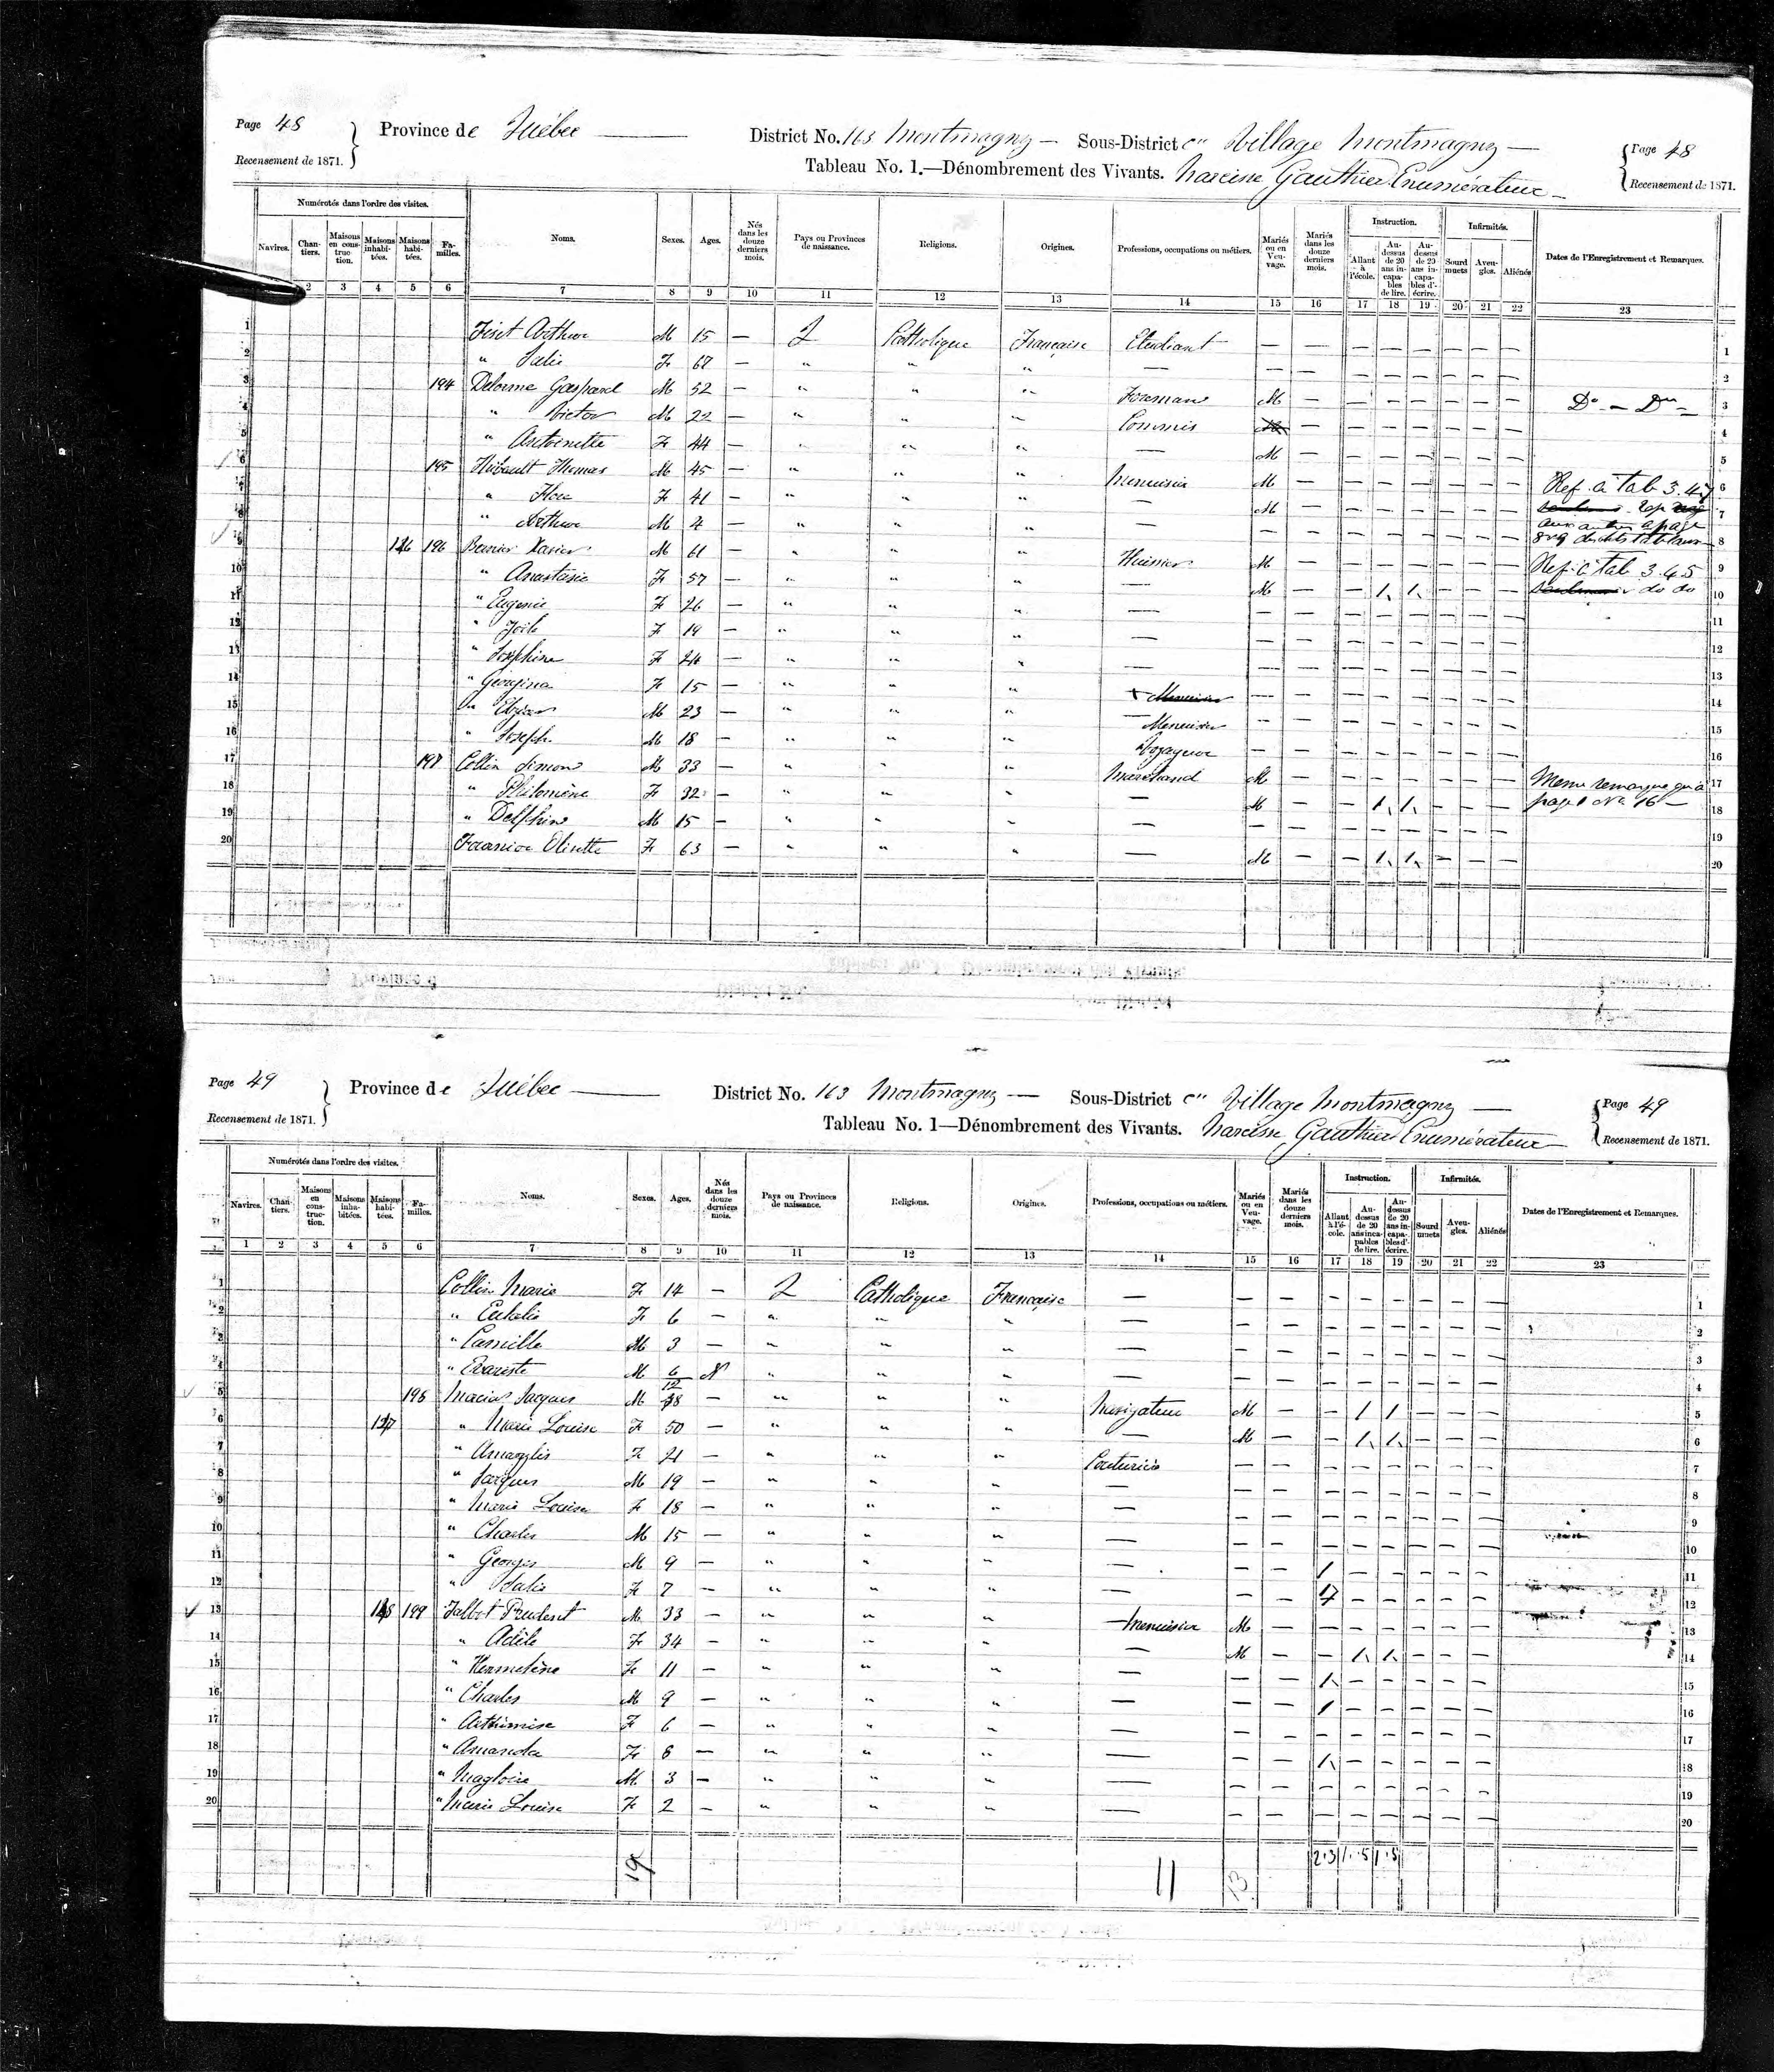 Page 48 Province de Québec District No. 163 Montmagny — Sous-District c" Village Montmagny — Page 48
Recensement de 1871. Tableau No. 1.—Dénombrement des Vivants. Narcisse Gauthier Enumérateur Recensement de 1871.
Numérotés dans l'ordre des visites. Instruction. Infirmités.
Navires. Chantiers. Maisons en construction. Maisons inhabitées. Maisons habitées. Familles. Noms. Sexes. Ages. Nés dans les douze derniers mois. Pays ou Provinces de naissance. Religions. Origines. Professions, occupations ou métiers. Mariés ou en Veuvage. Mariés dans les douze derniers mois. Allant à l'école. Au-dessus de 20 ans incapables de lire. Au-dessus de 20 ans incapables d'écrire. Sourd muets Aveugles. Aliénés Dates de l'Enregistrement et Remarques.
2 3 4 5 6 7 8 9 10 11 12 13 14 15 16 17 18 19 20 21 22 23
1 Fiset Arthur M 15 — Q Catholique Française Etudiant — — — — — — — — 1
2 " Julie F — " " " — — — — — — — — — 2
3 194 Delorme Gaspard M 52 — " " " Foreman M — — — — — — — Do — Do — 3
4 " Victor M 22 — " " " Commis — — — — — — — 4
5 " Antoinette F 44 — " " " — M — — — — — — — 5
6 195 Thibault Thomas M 45 — " " " Menuisier M — — — — — — — Ref. à Tab 3.4 6
7 " F 41 — " " " — M — — — — — — — 7
8 " Arthur M 4 — " " " — — — — — — — — — 8
9 126 196 Bernier Xavier M 61 — " " " Huissier M — — — — — — — Ref. à Tal 3.45 9
10 " Anastasie F 57 — " " " — M — — 1 1 — — — do do 10
11 " Eugenie F 26 — " " " — — — — — — — — — 11
12 " F 19 — " " " — — — — — — — — — 12
13 " Josephine F 24 — " " " — — — — — — — — — 13
14 " Georgina F 15 — " " " — — — — — — — — 14
15 " M 23 — " " " Menuisier — — — — — — — — 15
16 " Joseph M 18 — " " " Voyageur — — — — — — — — 16
17 197 Collin Simon M 33 — " " " Marchand M — — — — — — — Meme remarque qu'à 17
18 " Philomène F 32 — " " " — M — — 1 1 — — — page 1 No. 16 — 18
19 " Delphine M 15 — " " " — — — — — — — — — 19
20 F 63 — " " " — M — — 1 1 — — — 20
Page 49 Province de Québec District No. 163 Montmagny — Sous-District c" Village Montmagny — Page 49
Recensement de 1871. Tableau No. 1—Dénombrement des Vivants. Narcisse Gauthier Enumérateur Recensement de 1871.
Numérotés dans l'ordre des visites. Instruction. Infirmités.
Navires. Chantiers. Maisons en construction. Maisons inhabitées. Maisons habitées. Familles. Noms. Sexes. Ages. Nés dans les douze derniers mois. Pays ou Provinces de naissance. Religions. Origines. Professions, occupations ou métiers. Mariés ou en Veuvage. Mariés dans les douze derniers mois. Allant à l'école. Au-dessus de 20 ans incapables de lire. Au-dessus de 20 ans incapables d'écrire. Sourd muets Aveugles. Aliénés Dates de l'Enregistrement et Remarques.
1 2 3 4 5 6 7 8 9 10 11 12 13 14 15 16 17 18 19 20 21 22 23
1 Collin Marie F 14 — Q Catholique Française — — — — — — — — — 1
2 " Eulalie F 6 — " " " — — — — — — — — — 2
3 " Camille M 3 — " " " — — — — — — — — — 3
4 " Evariste M 6/12 N " " " — — — — — — — — — 4
5 198 Jacques M — " " " Navigateur M — — 1 1 — — — 5
6 127 " Marie Louise F 50 — " " " — M — — 1 1 — — — 6
7 " Amaryllis F 21 — " " " Couturière — — — — — — — — 7
8 " Jacques M 19 — " " " — — — — — — — — — 8
9 " Marie Louise F 18 — " " " — — — — — — — — — 9
10 " Charles M 15 — " " " — — — — — — — — — 10
11 " Georges M 9 — " " " — — — 1 — — — — — 11
12 " Julie F 7 — " " " — — — 1 — — — — — 12
13 128 199 Talbot Prudent M 33 — " " " Menuisier M — — — — — — — 13
14 " Adèle F 34 — " " " — M — — 1 1 — — — 14
15 " Hermeline F 11 — " " " — — — 1 — — — — — 15
16 " Charles M 9 — " " " — — — 1 — — — — — 16
17 " Arthémise F 6 — " " " — — — — — — — — — 17
18 " Amanda F 8 — " " " — — — 1 — — — — — 18
19 " Magloire M 3 — " " " — — — — — — — — — 19
20 " Marie Louise F 2 — " " " — — — — — — — — — 20
19 11 13